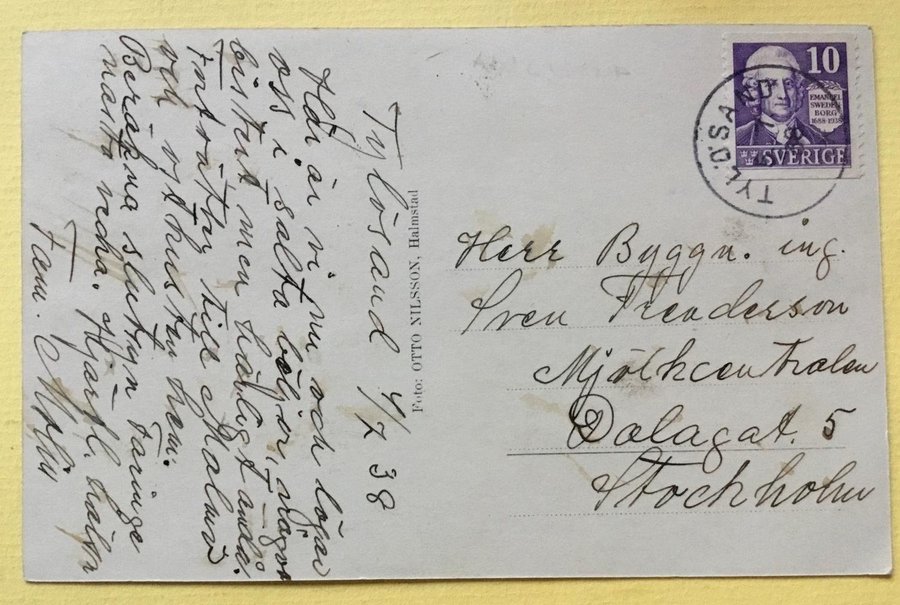 Tylösand 4/7 38
Här är vi nu och lögar
oss i salta böljor, något
bistert men härligt ändå.
Inträtta till Malmö
väl o. hustru hem.
Beräkna slutyn Taringe
nästa vecka. Hjärtl. hälsn
Fam.
Foto: OTTO NILSSON, Halmstad
10
EMANUEL
SWEDEN
BORG
1688-1938
SVERIGE
TYLÖSAND
Herr Byggn. ing.
Sven Theodersson
Mjölkcentralen
Dalagat. 5
Stockholm